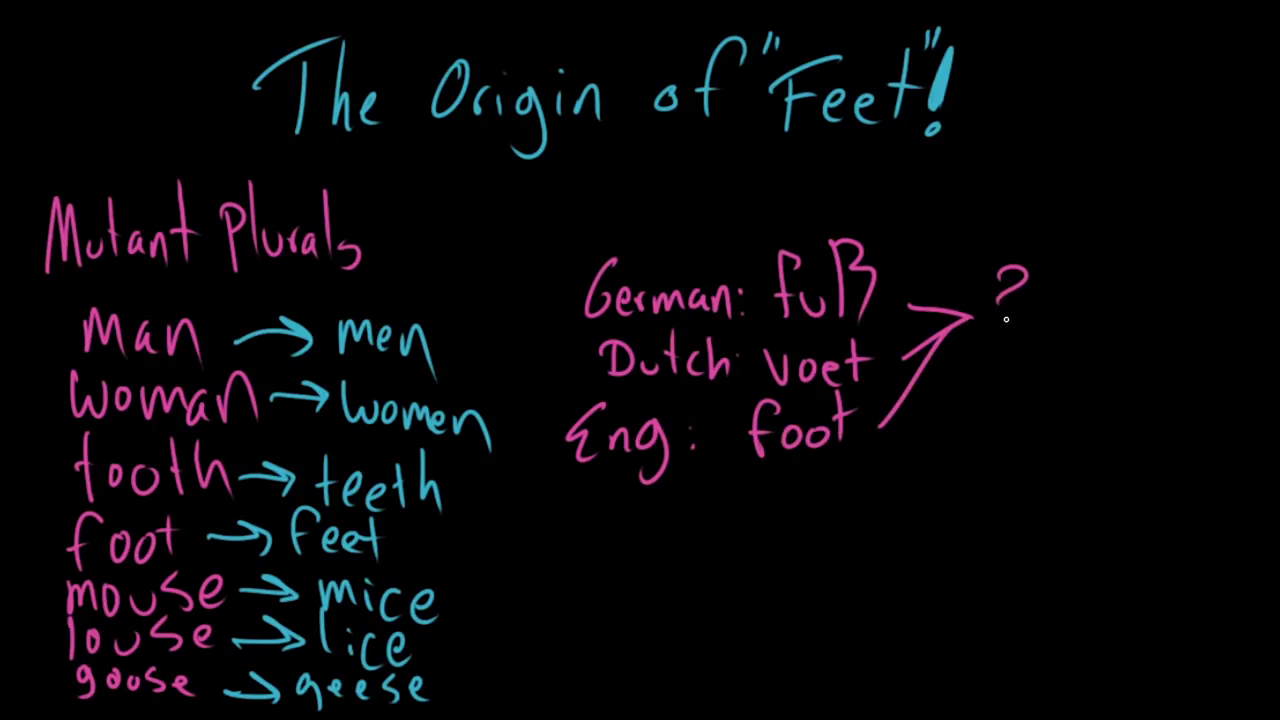 The Origin of "Feet"!
Mutant Plurals
man → men
woman → women
tooth → teeth
foot → feet
mouse → mice
louse → lice
goose → geese
German: fuß
Dutch: voet
Eng: foot
?